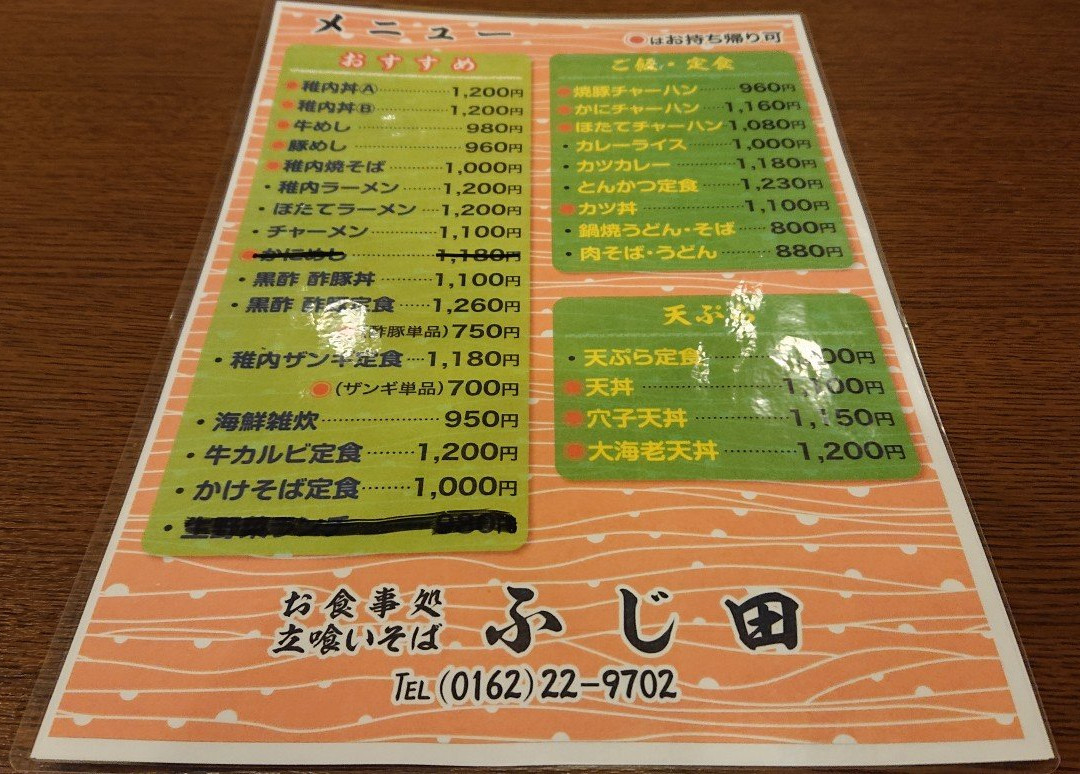 メニュー
●はお持ち帰り可
おすすめ
●稚内丼Ⓐ 1,200円
●稚内丼Ⓑ 1,200円
●牛めし 980円
●豚めし 960円
●稚内焼そば 1,000円
・稚内ラーメン 1,200円
・ほたてラーメン 1,200円
・チャーメン 1,100円
●かにめし 1,180円
・黒酢 酢豚丼 1,100円
・黒酢 酢豚定食 1,260円
酢豚単品) 750円
・稚内ザンギ定食 1,180円
●(ザンギ単品) 700円
・海鮮雑炊 950円
・牛カルビ定食 1,200円
・かけそば定食 1,000円
ご飯・定食
●焼豚チャーハン 960円
●かにチャーハン 1,160円
●ほたてチャーハン 1,080円
・カレーライス 1,000円
・カツカレー 1,180円
・とんかつ定食 1,230円
●カツ丼 1,100円
・鍋焼うどん・そば 800円
・肉そば・うどん 880円
天ぷら
・天ぷら定食
●天丼 1,100円
●穴子天丼 1,150円
●大海老天丼 1,200円
お食事処
立喰いそば
ふじ田
TEL(0162)22-9702